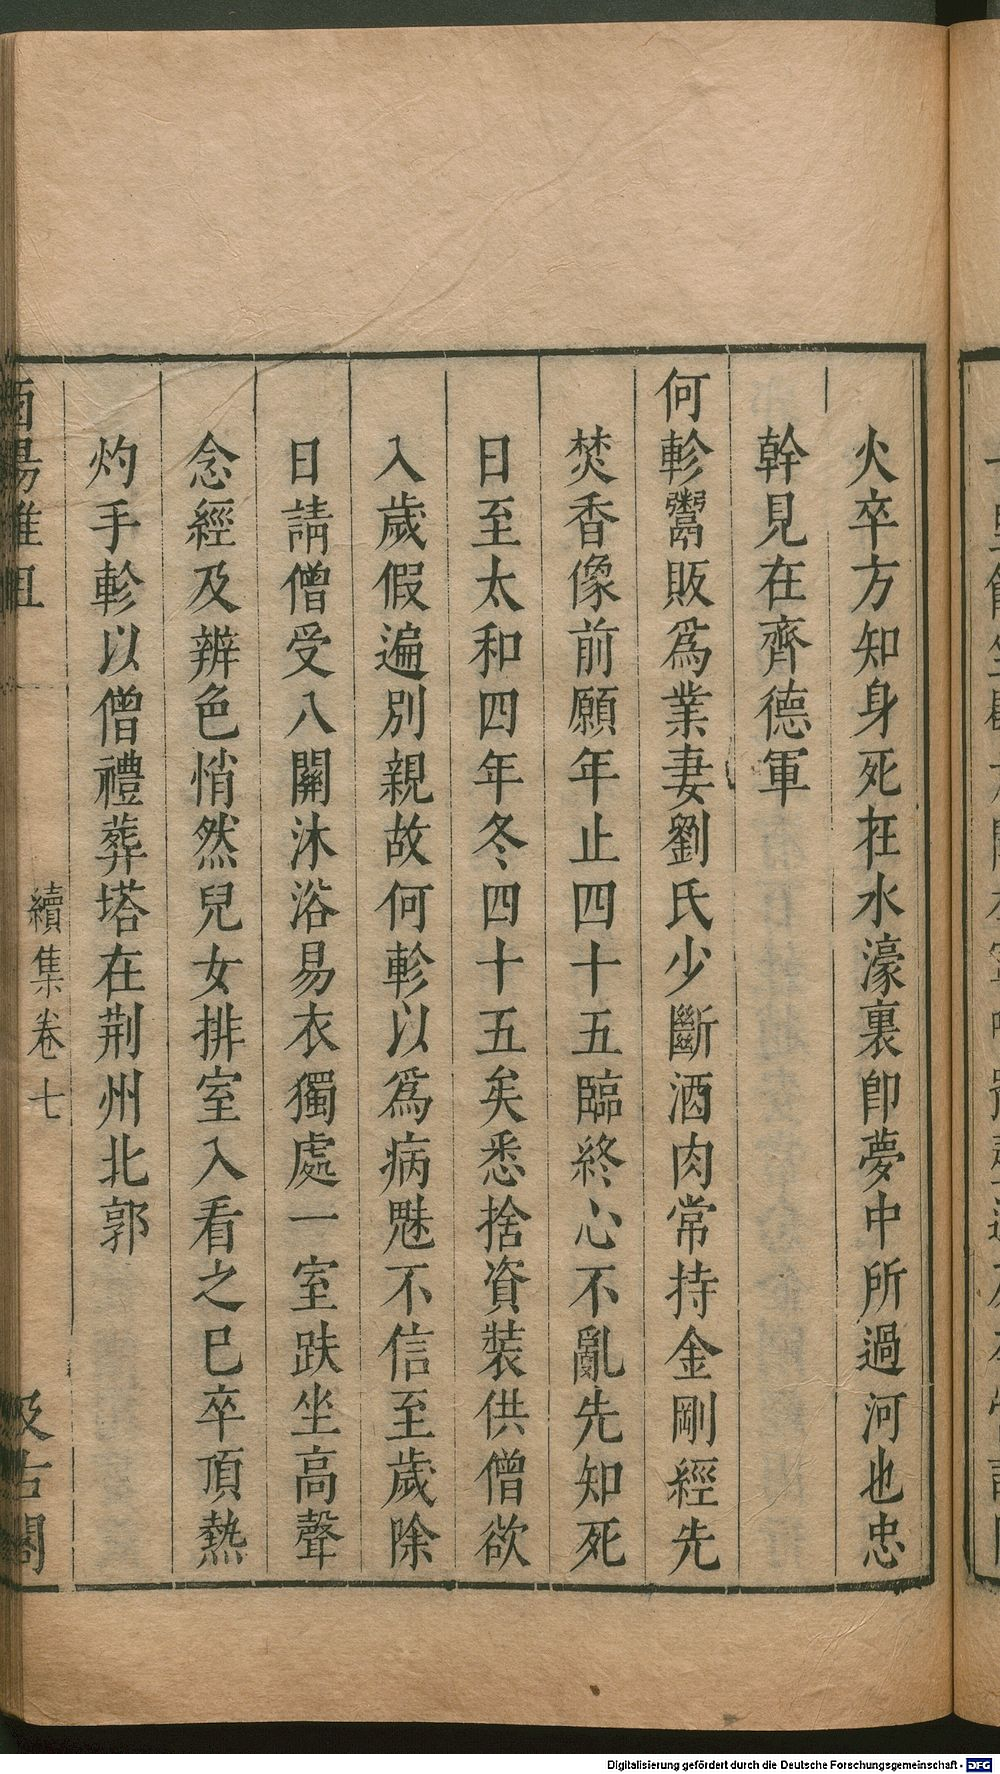 火卒方知身死在水濠裏卽夢中所過河也忠
幹見在齊德軍
何軫鬻販爲業妻劉氏少斷酒肉常持金剛經先
焚香像前願年止四十五臨終心不亂先知死
日至太和四年冬四十五矣悉捨資裝供僧欲
入歲假遍別親故何軫以爲病魅不信至歲除
日請僧受八關沐浴易衣獨處一室趺坐高聲
念經及辨色悄然兒女排室入看之巳卒頂熱
灼手軫以僧禮葬塔在荆州北郭
酉陽雜俎
續集卷七
汲古閣
Digitalisierung gefördert durch die Deutsche Forschungsgemeinschaft - DFG